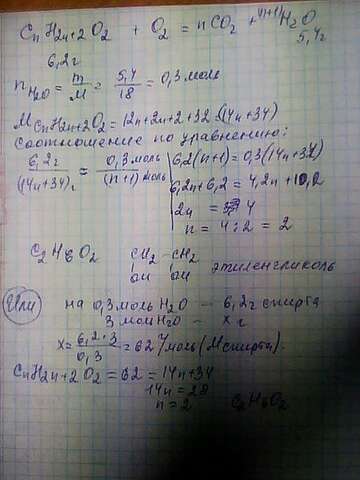 CnH2n+2O2 + O2 = nCO2 + (n+1)H2O
6,2г 5,4г
nH2O = m/M = 5,4/18 = 0,3 моль
MCnH2n+2O2 = 12n+2n+2+32 = (14n+34)
Соотношение по уравнению:
6,2г/(14n+34)г = 0,3 моль/(n+1) моль
6,2(n+1) = 0,3(14n+34)
6,2n+6,2 = 4,2n+10,2
2n = 4
n = 4:2 = 2
C2H6O2 CH2 – CH2
OH OH этиленгликоль
Или
на 0,3 моль H2O – 6,2г спирта
3 моль H2O – x г
x = 6,2·3/0,3 = 62 г/моль (M спирта)
CnH2n+2O2 = 62 = 14n+34
14n = 28
n = 2 C2H6O2